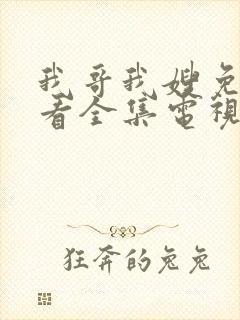 我哥我嫂免
看全集電視
狂奔的兔兔